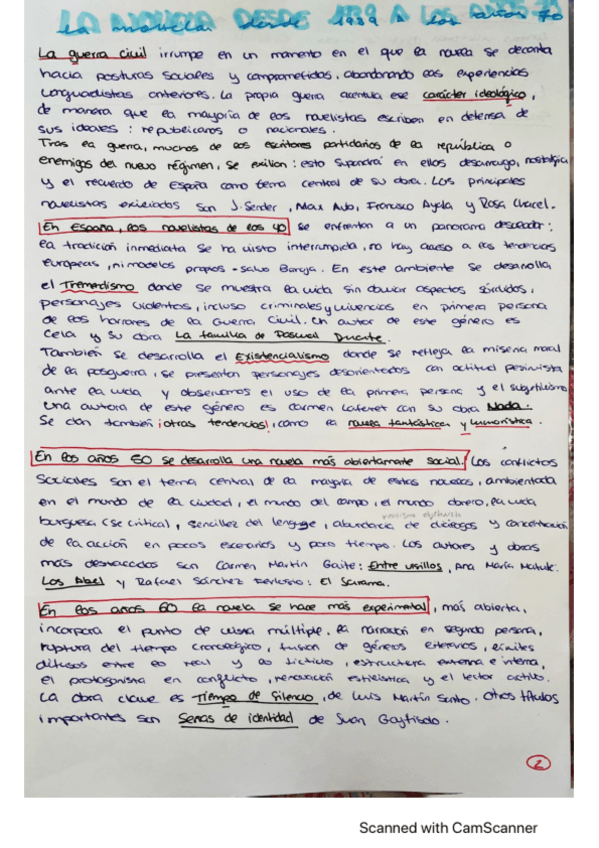 LA NOVELA DESDE 1939 A LOS AÑOS 70
La guerra civil irrumpe en un momento en el que la novela se decanta
hacia posturas sociales y comprometidas, abandonando las experiencias
vanguardistas anteriores. La propia guerra acentúa ese carácter ideológico,
de manera que la mayoría de los novelistas escriben en defensa de
sus ideales: republicanos o nacionales.
Tras la guerra, muchos de los escritores partidarios de la república o
enemigos del nuevo régimen, se exilian: esto supondrá en ellos desarraigo, nostalgia
y el recuerdo de España como tema central de su obra. Los principales
novelistas exiliados son J. Sender, Max Aub, Francisco Ayala y Rosa Chacel.
En España, los novelistas de los 40 se enfrentan a un panorama desolador:
la tradición inmediata se ha visto interrumpida, no hay acceso a las tendencias
Europeas, ni modelos propios -salvo Baroja. En este ambiente se desarrolla
el Tremendismo donde se muestra la vida sin obviar aspectos sórdidos,
personajes violentos, incluso criminales y vivencias en primera persona
de los horrores de la Guerra Civil. Un autor de este género es
Cela y su obra La familia de Pascual Duarte.
También se desarrolla el Existencialismo donde se refleja la miseria moral
de la posguerra, se presentan personajes desorientados con actitud pesimista
ante la vida y observamos el uso de la primera persona y el subjetivismo
Una autora de este género es Carmen Laforet con su obra Nada.
Se dan también ¡otras tendencias!, como la novela fantástica y humorística.
En los años 50 se desarrolla una novela más abiertamente social. Los conflictos
sociales son el tema central de la mayoría de estas novelas, ambientada
en el mundo de la ciudad, el mundo del campo, el mundo obrero, la vida
burguesa (se critica), sencillez del lenguaje, abundancia de diálogos y concentración
de la acción en pocos escenarios y poco tiempo. Los autores y obras
más destacados son Carmen Martín Gaite: Entre visillos, Ana María Matute:
Los Abel y Rafael Sánchez Ferlosio: El Jarama.
En los años 60 la novela se hace más experimental, más abierta,
incorpora el punto de vista múltiple, la narración en segunda persona,
ruptura del tiempo cronológico, fusión de géneros literarios, límites
difusos entre lo real y lo ficticio, estructura externa e interna,
el protagonista en conflicto, renovación estilística y el lector activo.
La obra clave es Tiempo de Silencio, de Luis Martín Santo. Otros títulos
importantes son Señas de identidad de Juan Goytisolo.
2
Scanned with CamScanner